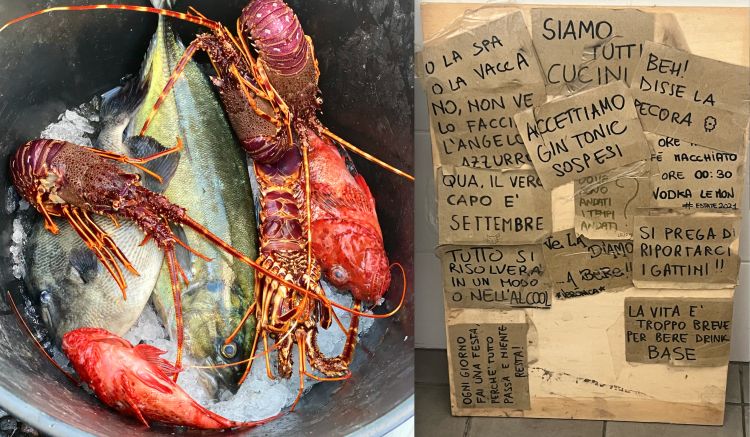 O LA SPA
O LA VACCA
SIAMO
TUTTI
CUCINI
BEH!
DISSE LA
PECORA
NO, NON VE
LO FACCIO
L'ANGELO
AZZURRO
ACCETTIAMO
GIN TONIC
SOSPESI
ORE
MACCHIATO
ORE 00:30
VODKA LEMON
#ESTATE2021
QUA, IL VERO
CAPO E'
SETTEMBRE
DOVE
SONO
ANDATI
I TEMPI
ANDATI
?
SI PREGA DI
RIPORTARCI
I GATTINI!!
TUTTO SI
RISOLVERÀ
IN UN MODO
O NELL'ALCOOL
VE LA
DIAMO
A BERE!!
LA VITA E'
TROPPO BREVE
PER BERE DRINK
BASE
OGNI GIORNO
FAI UNA FESTA
PERCHE' TUTTO
PASSA E NIENTE
RESTA!